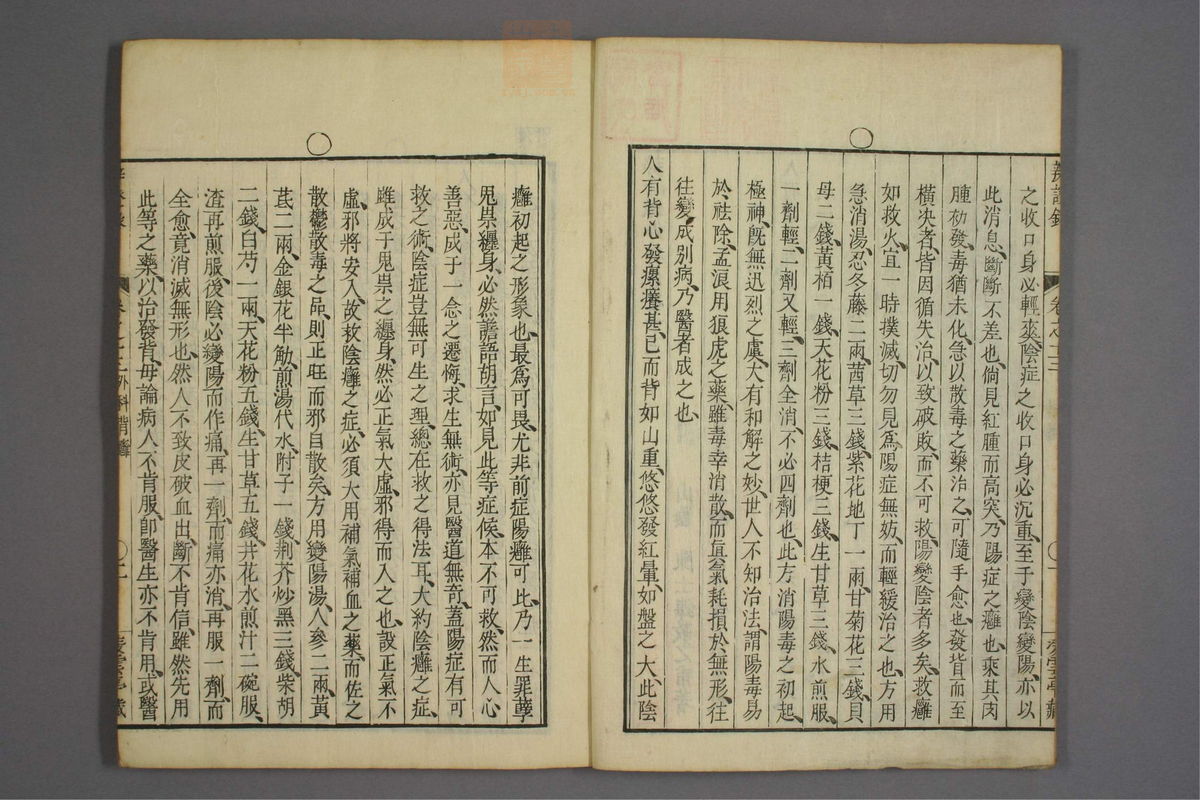 辨證錄 卷之十三
之收口身必輕爽陰症之收口身必沉重至于變陰變陽亦以
此消息斷斷不差也倘見紅腫而高突乃陽症之癰也乘其肉
腫初發毒猶未化急以散毒之藥治之可隨手愈也發背而至
橫決者皆因循失治以致破敗而不可救陽變陰者多矣救癰
如救火宜一時撲滅切勿見爲陽症無妨而輕緩治之也方用
急消湯忍冬藤二兩茜草三錢紫花地丁一兩甘菊花三錢貝
母二錢黃栢一錢天花粉三錢桔梗三錢生甘草三錢水煎服
一劑輕二劑又輕三劑全消不必四劑也此方消陽毒之初起
極神旣無迅烈之虞大有和解之妙世人不知治法謂陽毒易
於祛除孟浪用狼虎之藥雖毒幸消散而眞氣耗損於無形往
往變成別病乃醫者成之也
人有背心發瘰癢甚已而背如山重悠悠發紅暈如盤之大此陰
癰初起之形象也最爲可畏尤非前症陽癰可比乃一生罪孽
鬼祟纒身必然譫語胡言如見此等症候本不可救然而人心
善惡成于一念之遷悔求生無術亦見醫道無奇蓋陽症有可
救之術陰症豈無可生之理總在救之得法耳大約陰癰之症
雖成于鬼祟之纒身然必正氣大虛邪得而入之也設正氣不
虛邪將安入故救陰癰之症必須大用補氣補血之藥而佐之
散鬱散毒之品則正旺而邪自散矣方用變陽湯人參二兩黃
芪二兩金銀花半觔煎湯代水附子一錢荆芥炒黑三錢柴胡
二錢白芍一兩天花粉五錢生甘草五錢井花水煎汁二碗服
渣再煎服後陰必變陽而作痛再一劑而痛亦消再服一劑而
全愈竟消滅無形也然人不致皮破血出斷不肯信雖然先用
此等之藥以治發背毋論病人不肯服卽醫生亦不肯用或醫